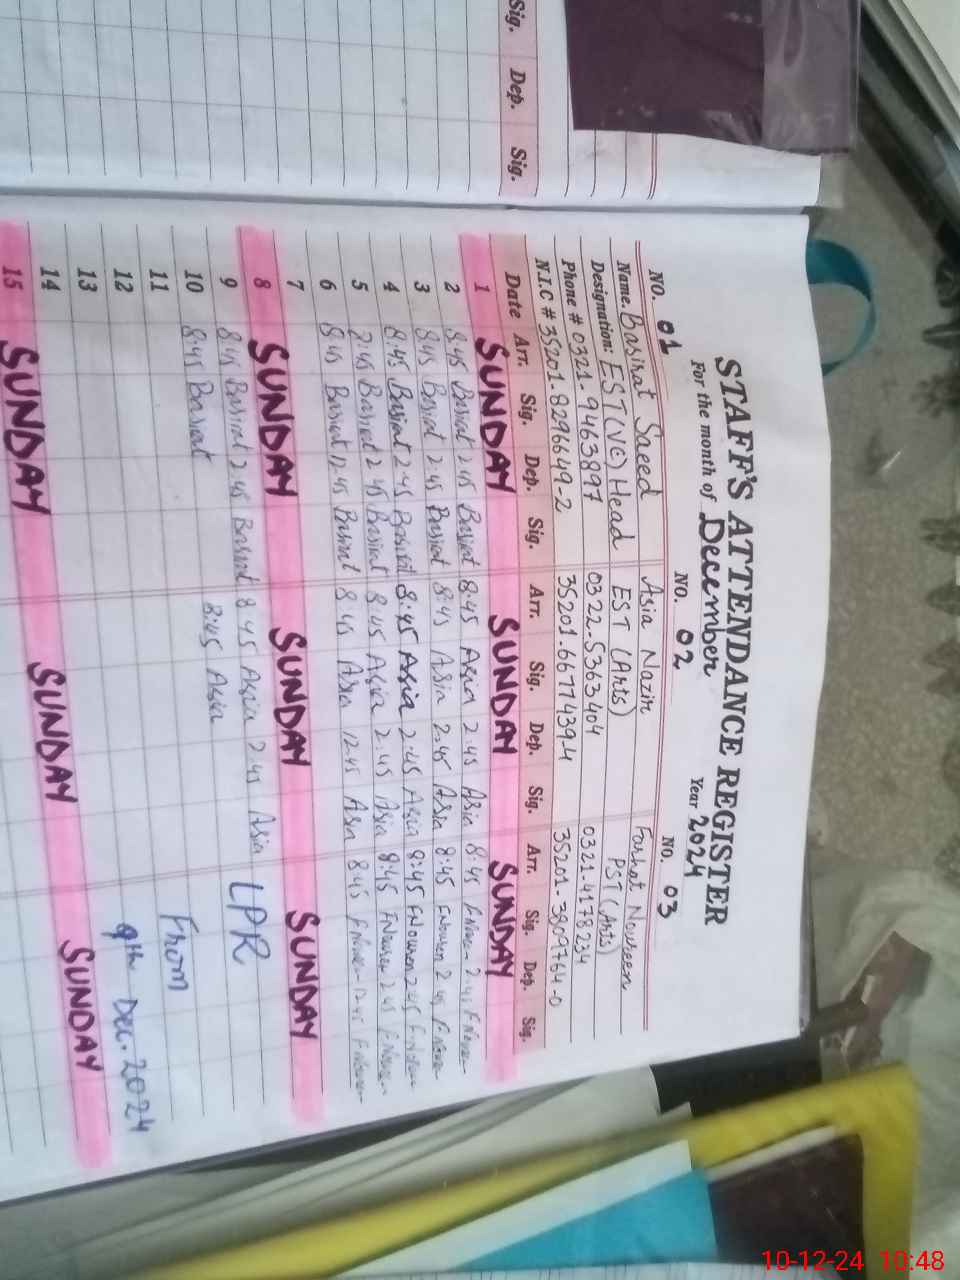 Sig. Dep. Sig.
STAFF'S ATTENDANCE REGISTER
For the month of December Year 2024
NO. 01 NO. 02 NO. 03
Name. Basirat Saeed Asia Nazir Farhat Noureen
Designation: EST(VE) Head EST (Arts) PST (Arts)
Phone # 0321-9463897 0322-5363404 0321-4178234
N.I.C # 35201-8296649-2 35201-6677439-4 35201-3809764-0
Date Arr. Sig. Dep. Sig. Arr. Sig. Dep. Sig. Arr. Sig. Dep. Sig.
1 SUNDAY SUNDAY SUNDAY
2 8:45 Basirat 2:45 Basirat 8:45 Asia 2:45 Asia 8:45 2:45
3 8:45 Basirat 2:45 Basirat 8:45 Asia 2:45 Asia 8:45 FNoureen 2:45
4 8:45 Basirat 2:45 Basirat 8:45 Asia 2:45 Asia 8:45 FNoureen 2:45
5 8:45 Basirat 2:45 Basirat 8:45 Asia 2:45 Asia 8:45 FNoureen 2:45
6 8:45 Basirat 12:45 Basirat 8:45 Asia 12:45 Asia 8:45 12:45
7
8 SUNDAY SUNDAY SUNDAY
9 8:45 Basirat 2:45 Basirat 8:45 Asia 2:45 Asia LPR
10 8:45 Basirat 8:45 Asia
11 From
12 9th Dec. 2024
13
14
15 SUNDAY SUNDAY SUNDAY
10-12-24 10:48